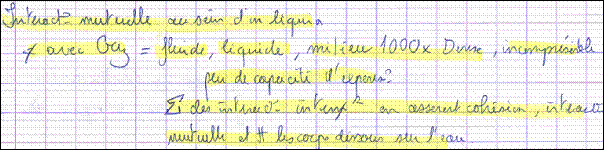 Interact° mutuelle au sein d'un liquide
≠ avec Gaz = fluide, liquide, milieu 1000x Dense, incompressible
peu de capacité d'expans°
Σ des interact° intermol en assurent cohésion, interact°
mutuelle et # les corps dissous sur l'eau.